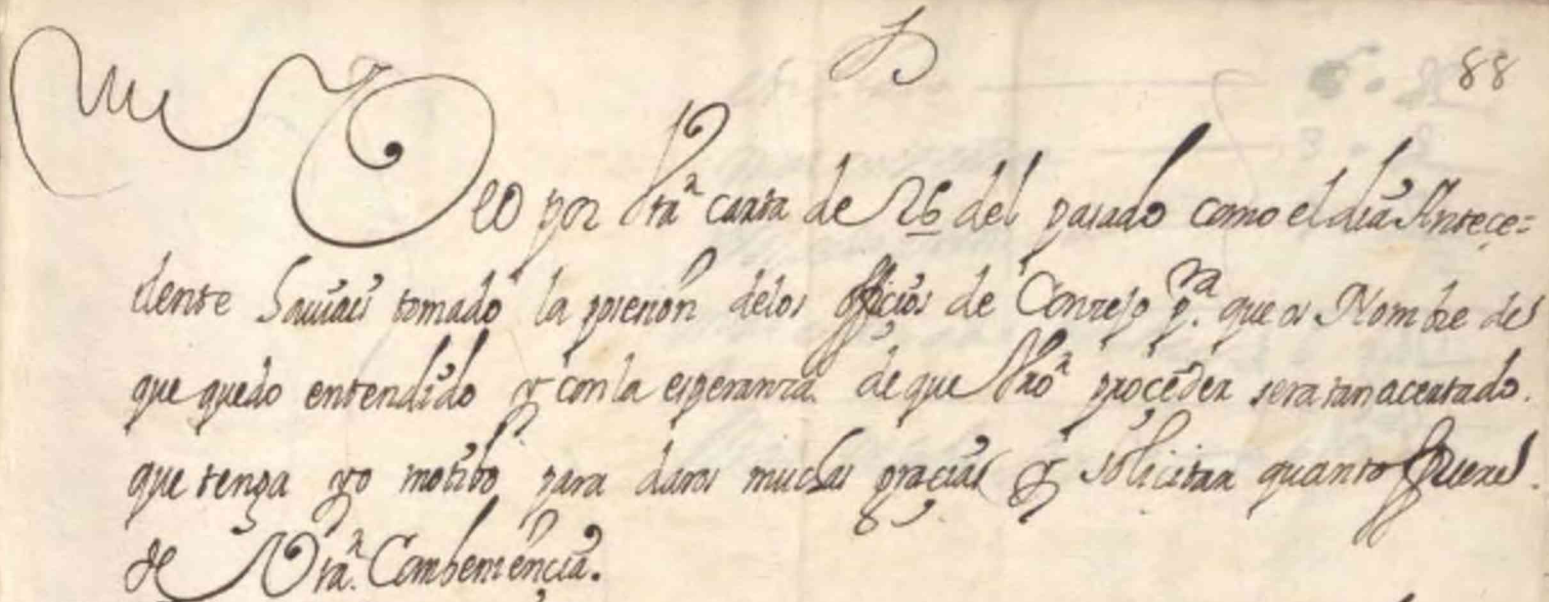 88
Veo por Vrã carta de 26 del pasado como el dia Antece=
dente haviais tomado la posesion delos officios de Consejo p.ra que os Nombre de
que quedo entendido y con la esperanza de que Vrõ proceder sera tan acertado.
que tenga yo motibo para daros muchas gracias y solicitar quanto fuere
de Vrã. Combeniencia.